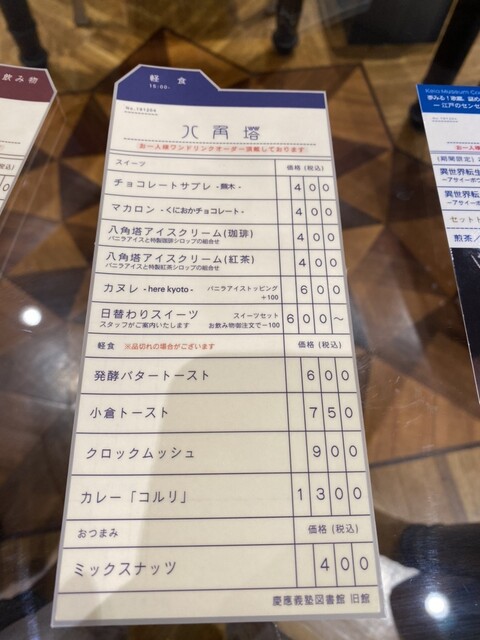 飲み物
軽食
15:00-
No.181204
八角塔
お一人様ワンドリンクオーダー頂戴しております
スイーツ 価格(税込)
チョコレートサブレ -蕪木- 400
マカロン -くにおかチョコレート- 400
八角塔アイスクリーム(珈琲) 400
バニラアイスと特製珈琲シロップの組合せ
八角塔アイスクリーム(紅茶) 400
バニラアイスと特製紅茶シロップの組合せ
カヌレ -here kyoto- バニラアイストッピング +100 600
日替わりスイーツ スイーツセット 600〜
スタッフがご案内いたします お飲み物御注文で−100
軽食 ※品切れの場合がございます 価格(税込)
発酵バタートースト 600
小倉トースト 750
クロックムッシュ 900
カレー「コルリ」 1300
おつまみ 価格(税込)
ミックスナッツ 400
慶應義塾図書館 旧館
税込)
Keio Museum Co
お一人様
(期間限定)
異世界転生
−アサイーボウ
異世界転生
−アサイーボウ
セットド
煎茶/